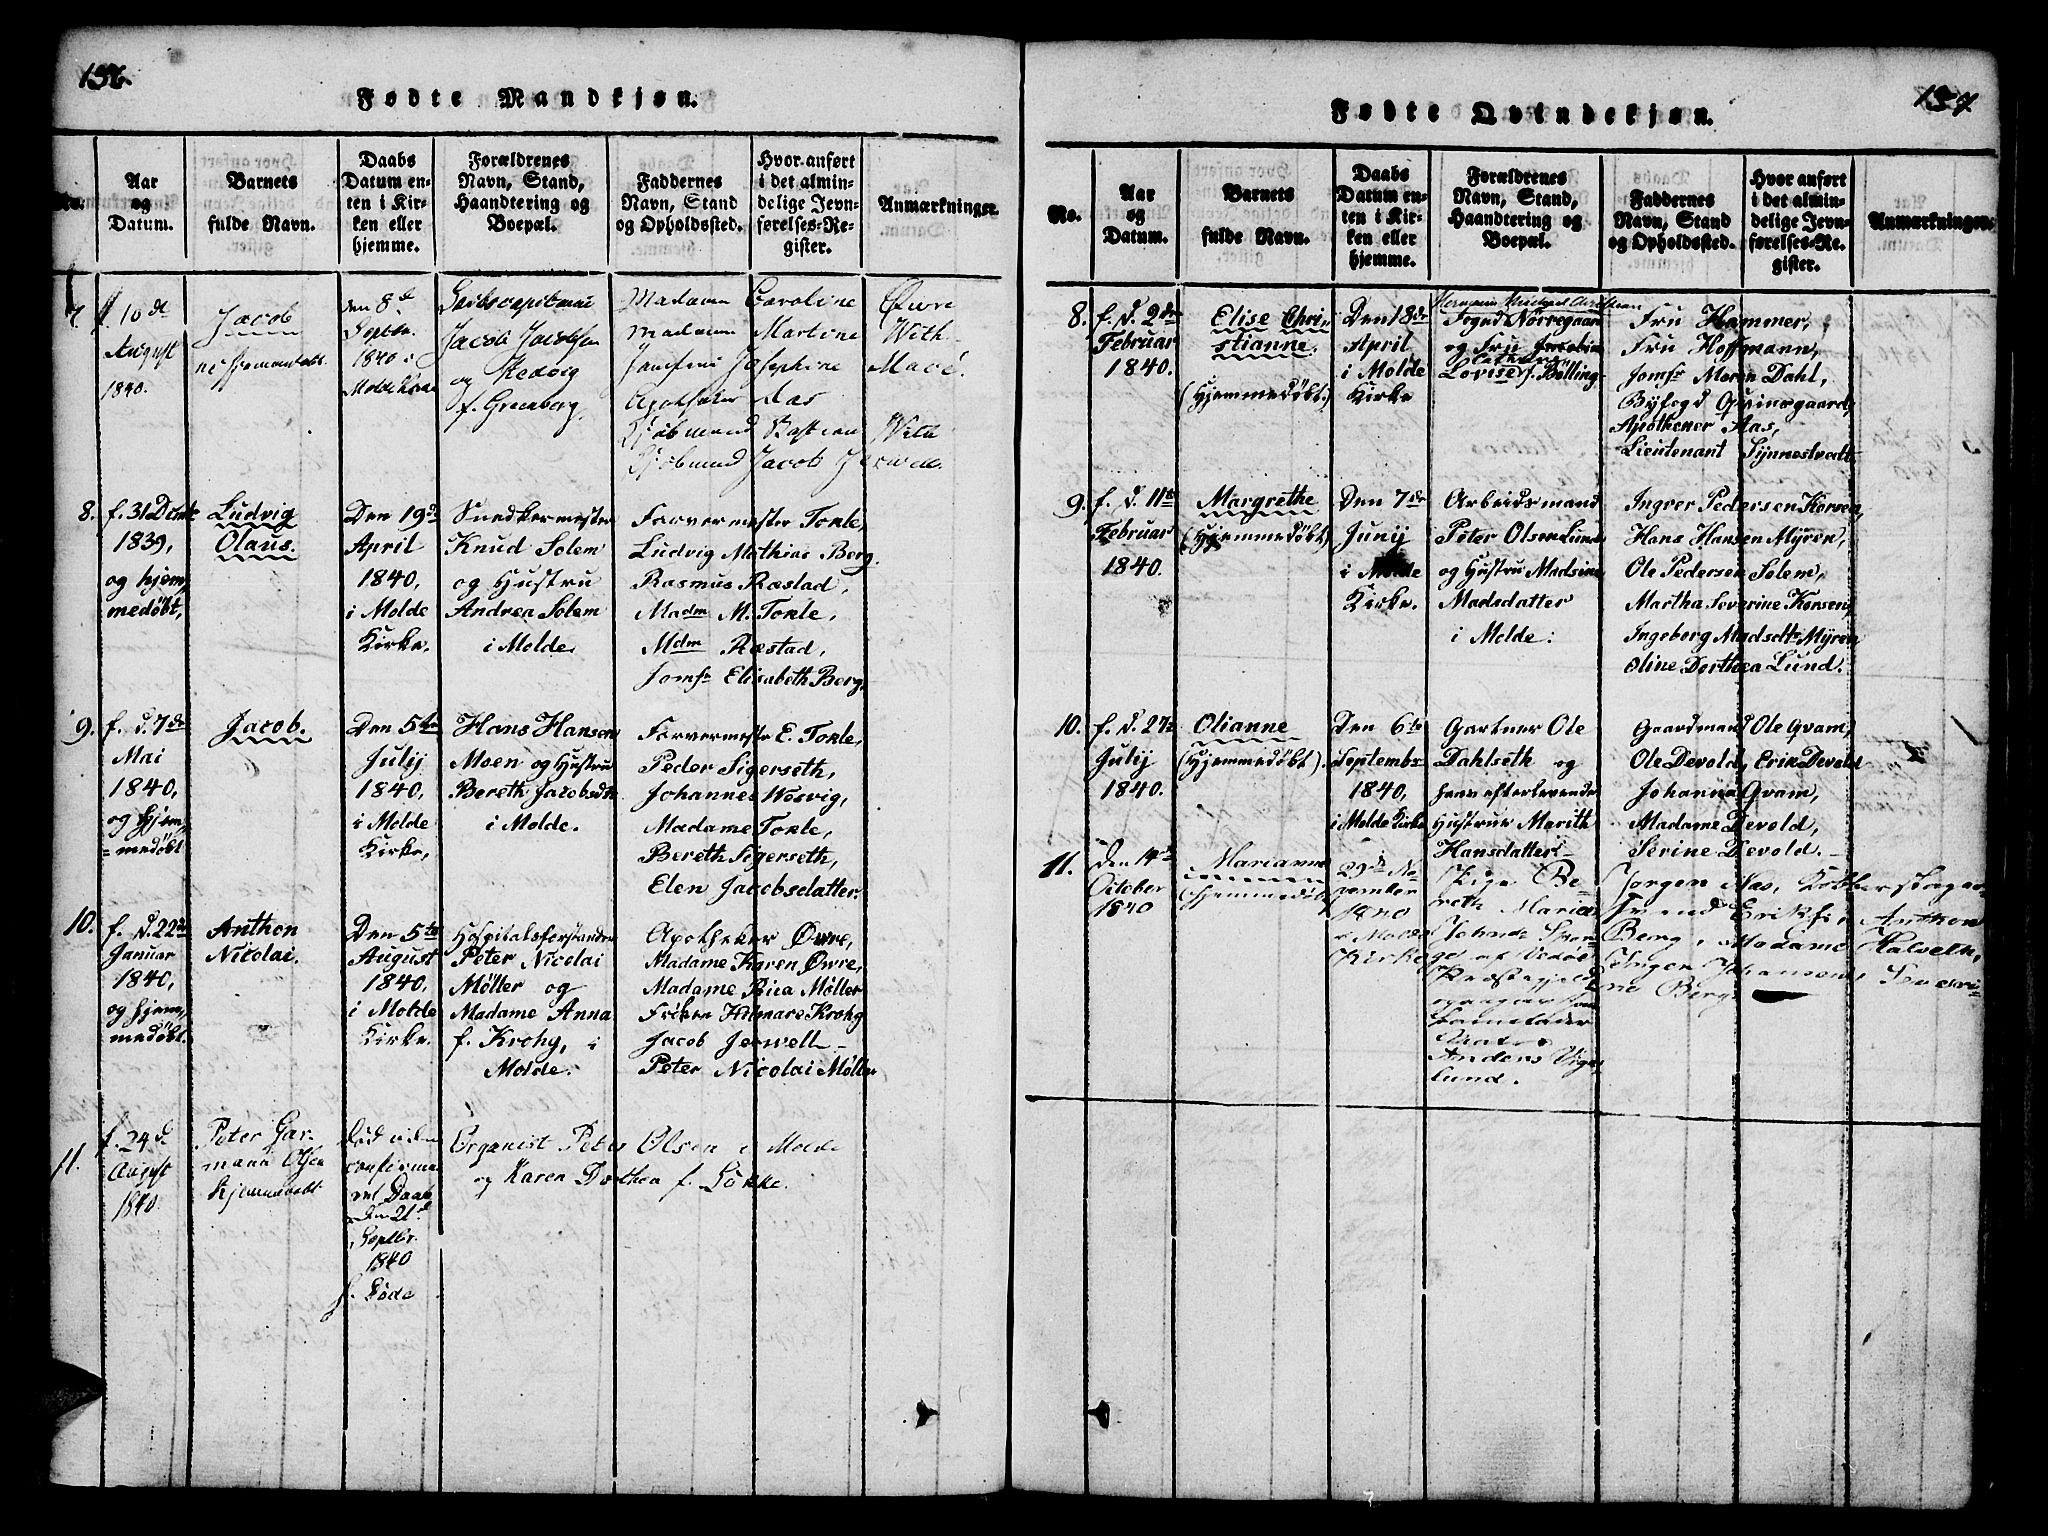 156.
Fødte Mandkjøn.
No.
Aar
og
Datum.
Barnets
fulde Navn.
Daabs
Datum en-
ten i Kir-
ken eller
hjemme.
Forældrenes
Navn, Stand,
Haandtering og
Boepæl.
Faddernes
Navn, Stand
og Opholdssted.
Hvor anført
i det almin-
delige Jevn-
førelses-Re-
gister.
Anmærkninger.
7.
f. 10de
August
1840.
Jacob
den 8de
Septbr.
1840 i
Molde Kirke
Jacob Jacobsen
og Hedvig
f. Greenberg.
Madame Caroline Øwre
Madame Martine With
Jomfrue Josephine Macé.
Apotheker Aas
Kjøbmand Bastian With
Kjøbmand Jacob Jerwell.
8.
f. 31 Decbr.
1839,
og hjem-
medøbt,
Ludvig
Olaus.
Den 19de
April
1840,
i Molde
Kirke.
Snedkermester
Knud Solem
og Hustru
Andrea Solem
i Molde.
Farvermester Tonle,
Ludvig Mathias Berg.
Rasmus Ræstad,
Madm M. Tonle,
Mdm Ræstad,
Jomfr Elisabeth Berg.
9.
f. d. 7de
Mai
1840,
og hjem-
=medøbt
Jacob.
Den 5te
Julij
1840,
i Molde
Kirke,
Hans Hansen
Moen og Hustru
Bereth Jacobsdtr
i Molde.
Farvermester E. Tonle,
Peder Sigerseth,
Johannes Wosvig,
Madame Tonle,
Bereth Sigerseth,
Elen Jacobsdatter.
10.
f. d. 22de
Januar
1840,
og hjem-
medøbt.
Anthon
Nicolai.
Den 5te
August
1840.
i Molde
Kirke.
Hospitalsforstander
Peter Nicolai
Møller og
Madame Anna
f. Krohg, i
Molde.
Apotheker Øwre,
Madame Karen Øwre,
Madame Rica Møller
Frøken Hilmare Krohg
Jacob Jerwell -
Peter Nicolai Møller
11.
f. 24d.
August
1840.
Peter Gar-
mann Olsen
hjemmedøbt
død uden
confirme-
ret Daab
den 21d
Septbr.
1840
Organist Peter Olsen i Molde
og Karen Dorthea f. Løkke.
157.
Fødte Qvindekjøn.
No.
Aar
og
Datum.
Barnets
fulde Navn.
Daabs
Datum en-
ten i Kir-
ken eller
hjemme.
Forældrenes
Navn, Stand,
Haandtering og
Boepæl.
Faddernes
Navn, Stand
og Opholdssted.
Hvor anført
i det almin-
delige Jevn-
førelses-Re-
gister.
Anmærkninger.
8.
f. d. 2den
Februar
1840.
Elise Chri-
stianne.
(Hjemmedøbt.)
Den 18de
April
i Molde
Kirke
Herman Michael Christian
Foged Nørregaard
og Fru
Lovise f. Bølling.
Fru Hammer,
Fru Hoffmann,
Jomfr Meren Dahl,
Byfogd Qvinsgaard,
Apothener Aas,
Lieutenant Synnestvedt.
9.
f. d. 11te
Februar
1840.
Margrethe
(Hjemmedøbt)
Den 7de
Junij
i Molde
Kirke.
Arbeidsmand
Peter Olsen Lund
og Hustru Madsine
Madsdatter
i Molde.
Ingrer Pedersen Korsen,
Hans Hansen Myren,
Ole Pedersen Solem,
Martha Severine Korsen,
Ingeborg Madsdtr Myren
Oline Dorthea Lund.
10.
f. d. 27de
Julij
1840.
Olianne
(Hjemmedøbt).
Den 6te
Septembr
1840,
i Molde Kirke
Gartner Ole
Dahlseth og
hans efterlevende
Hustrue Marith
Hansdatter.
Gaardmand Ole Qvam,
Ole Devold, Erik Devold
Johanna Qvam,
Madame Devold,
Serine Devold.
11.
Den 14de
October
1840
Marianne
Hjemmedøbt
29de No-
vember
1840
i Molde
Kirke
Pige Be-
reth Maria
Præstegjeld
Anders Vige-
lund.
Jørgen Aas,
Svend Eriksen, Anthon
Berg, Madame Kalveth,
Inger Johansen, Severi-
ne Berg.